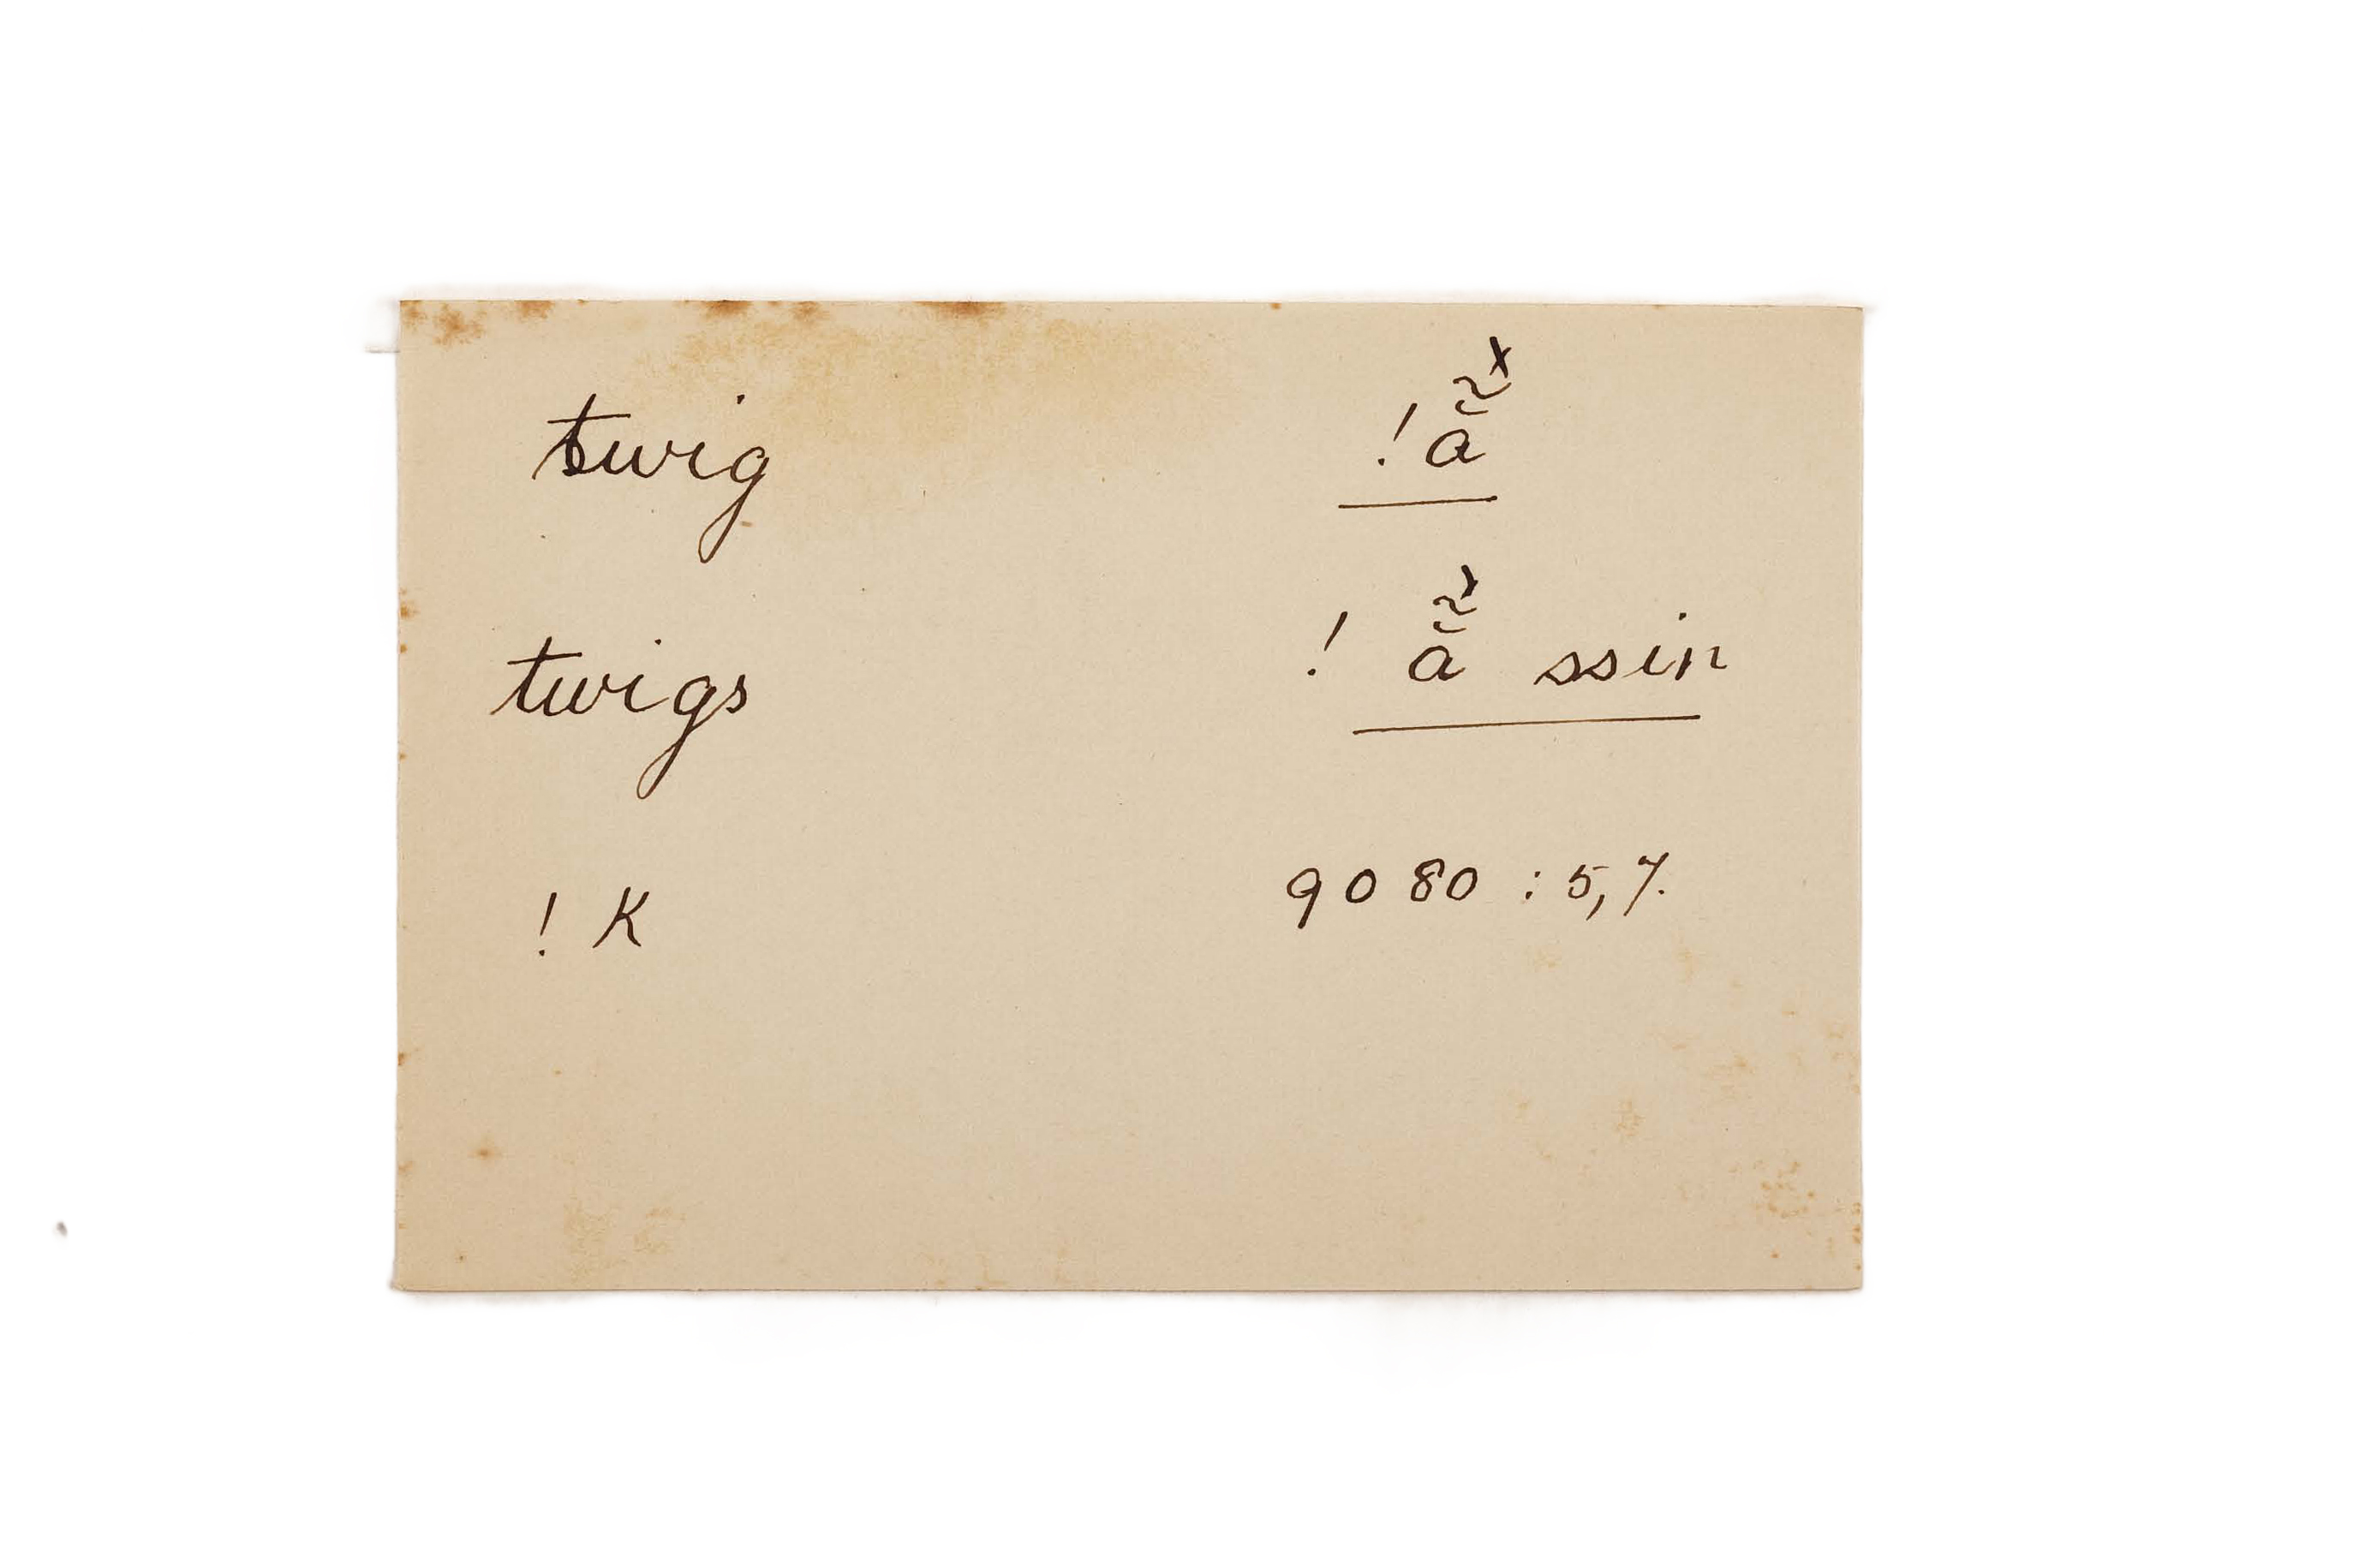 twig !ã̰ˣ
twigs ! ã̃ˣ ssin
! K 9080 : 5, 7.